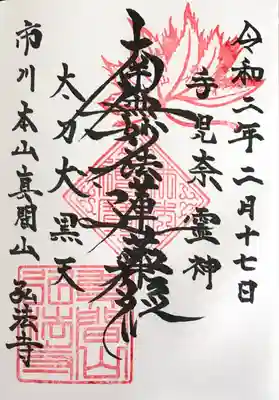 令和二年二月十七日
手児奈霊神
南無妙法蓮華経
太刀大黒天
市川本山真間山弘法寺